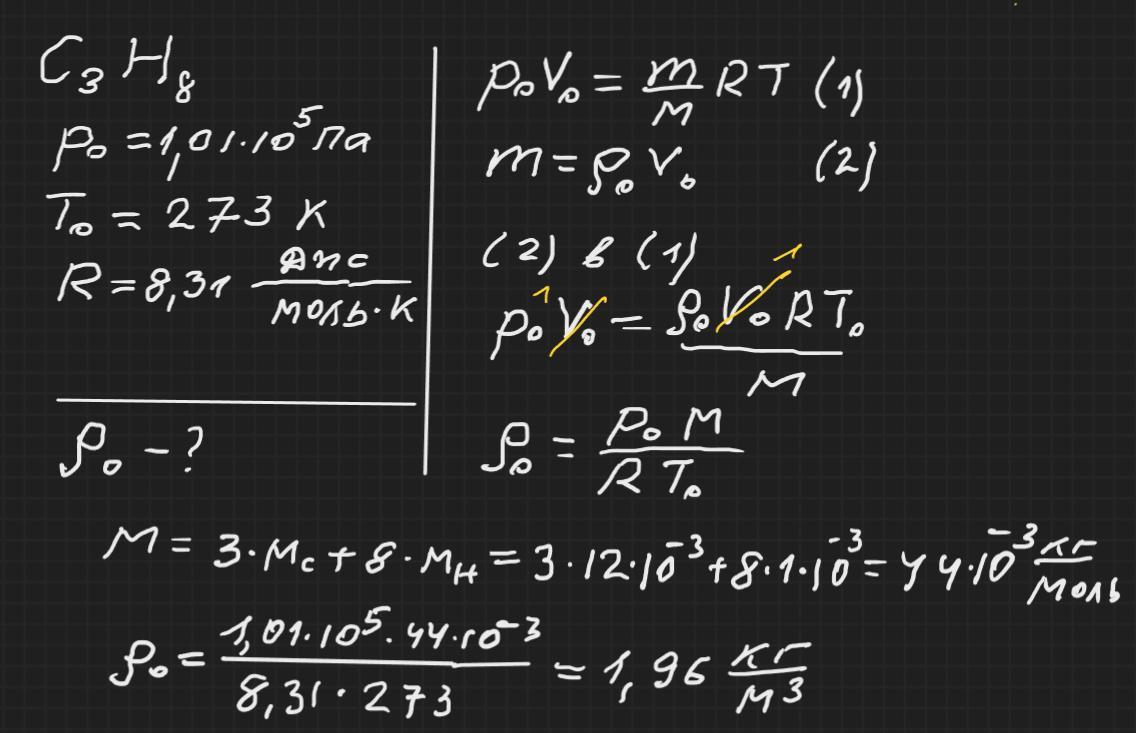 C₃H₈
p₀ = 1,01·10⁵ Па
T₀ = 273 К
R = 8,31 Дж/моль·К
ρ₀ - ?
p₀V₀ = m/M RT (1)
m = ρ₀V₀ (2)
(2) в (1)
p₀V₀ = ρ₀V₀RT₀/M
1 1
ρ₀ = p₀M/RT₀
M = 3·Mc + 8·Mн = 3·12·10⁻³ + 8·1·10⁻³ = 44·10⁻³ кг/моль
ρ₀ = 1,01·10⁵·44·10⁻³/8,31·273 = 1,96 кг/м³